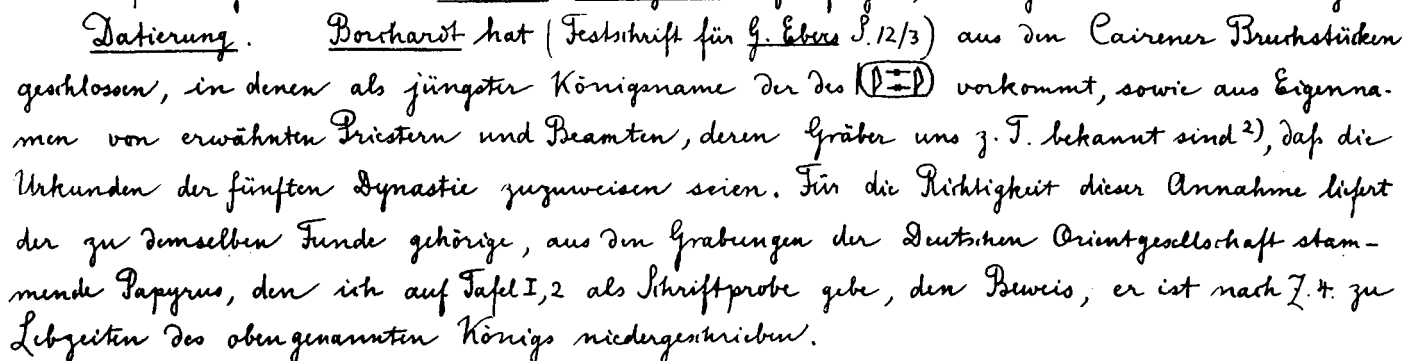 Datierung. Borchardt hat (Festschrift für G. Ebers S. 12/3) aus den Cairener Bruchstücken
geschlossen, in denen als jüngster Königsname der des 𓍹𓇋𓊃𓊃𓇋𓍺 vorkommt, sowie aus Eigenna-
men von erwähnten Priestern und Beamten, deren Gräber uns z. T. bekannt sind 2), daß die
Urkunden der fünften Dynastie zuzuweisen seien. Für die Richtigkeit dieser Annahme liefert
der zu demselben Funde gehörige, aus den Grabungen der Deutschen Orientgesellschaft stam-
mende Papyrus, den ich auf Tafel I, 2 als Schriftprobe gebe, den Beweis, er ist nach Z. 4. zu
Lebzeiten des oben genannten Königs niedergeschrieben.